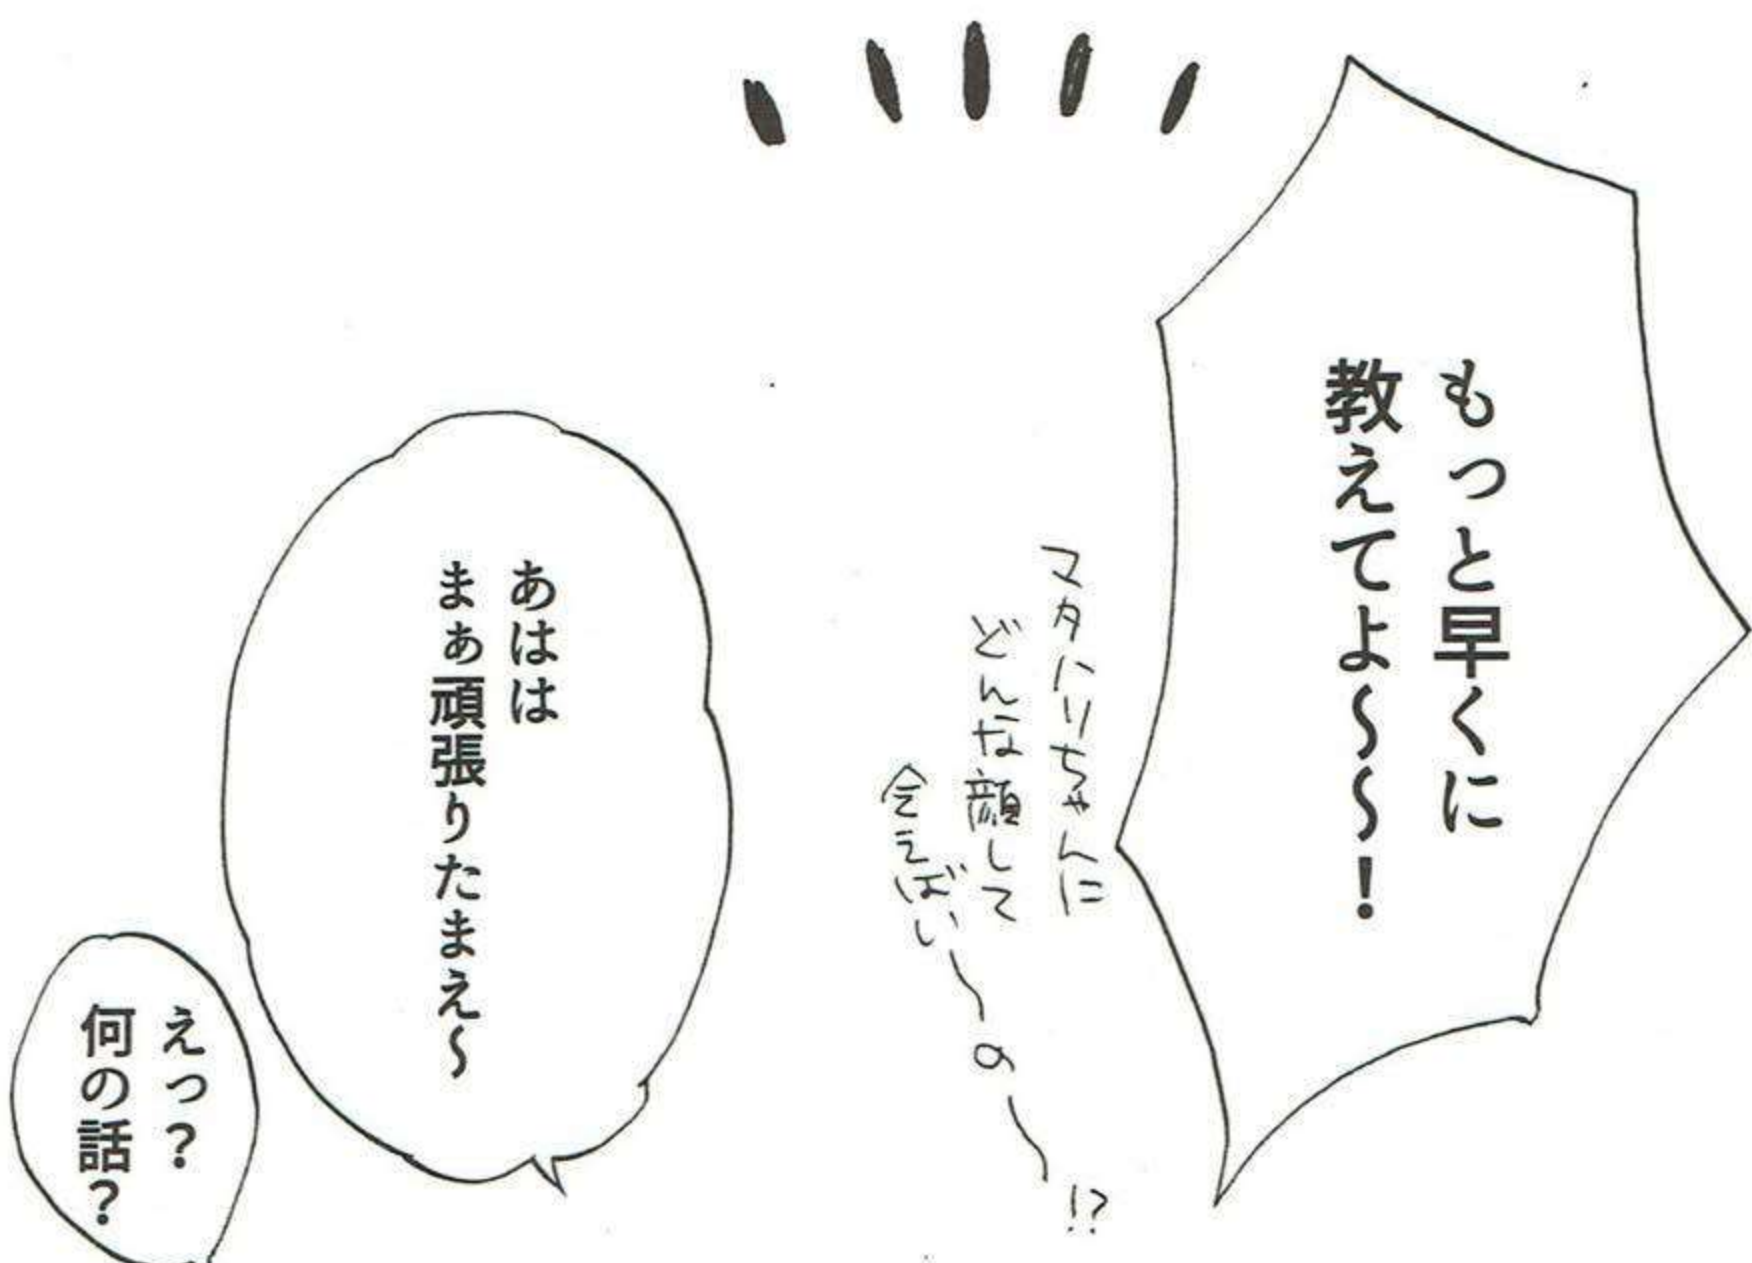 もっと早くに
教えてよ〜〜!
マタハリちゃんに
どんな顔して
会えばい〜の〜!?
あはは
まぁ頑張りたまえ〜
えっ?
何の話?